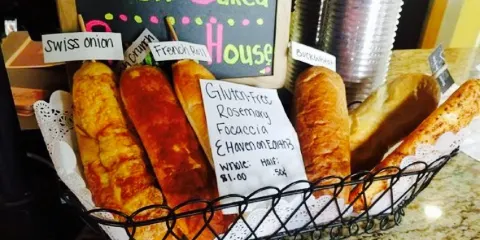 Baked
House
SWISS ONION
French Roll
Gluten-Free
Rosemary
Focaccia
& Haven on Earth B
Whole: Half:
$1.00 50¢